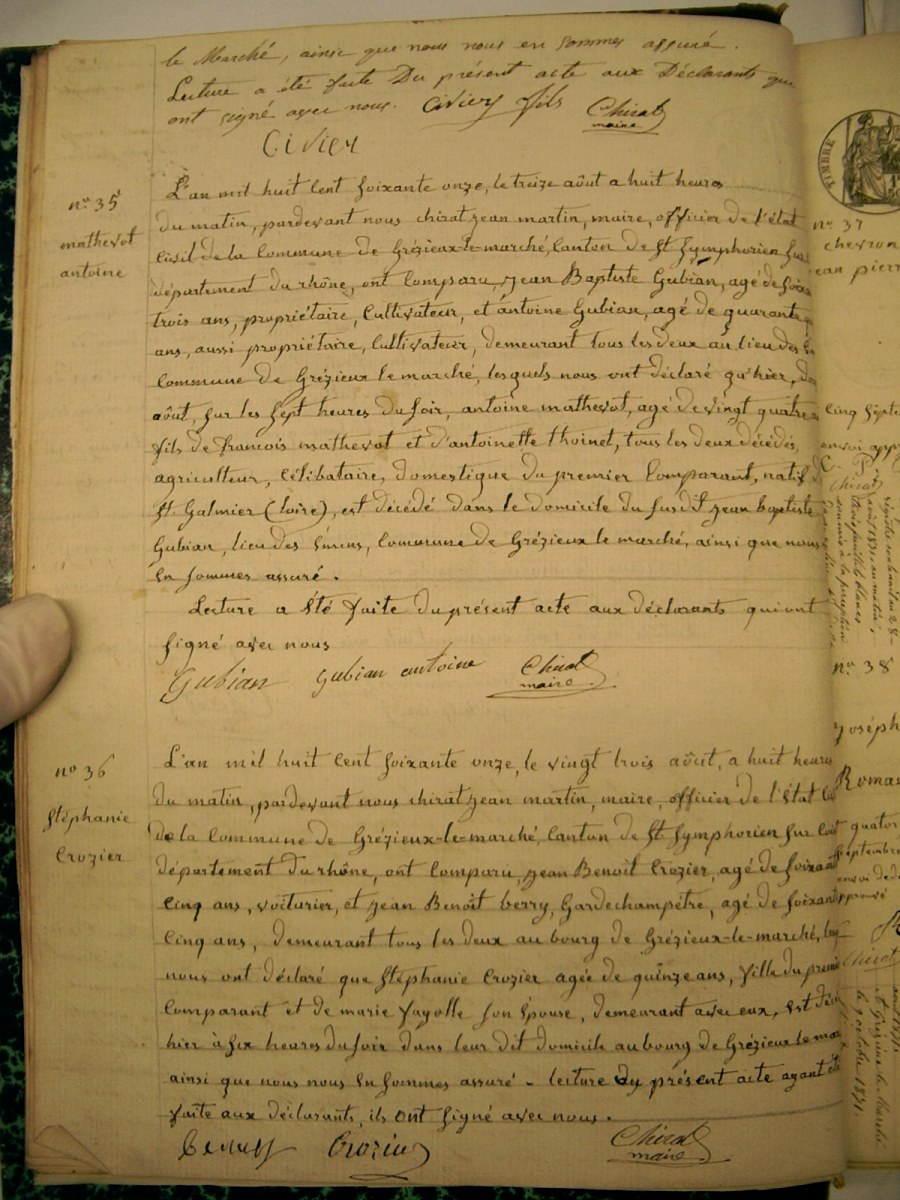 le Marché, ainsi que nous nous en sommes assuré.
Lecture a été faite Du présent acte aux Déclarants qui
ont signé avec nous. Civier fils Chirat
maire
Civier
n° 35
mathevot
antoine
L'an mil huit cent soixante onze, le treize aôut a huit heures
du matin, pardevant nous chirat jean martin, maire, officier de l'état
civil de la commune de Grézieux-le-marché, canton de St Symphorien sur
département du rhône, ont comparu, jean Baptiste Gubian, agé de soixa
trois ans, propriétaire, cultivateur, et antoine Gubian, agé de quarante
ans, aussi propriétaire, cultivateur, demeurant tous les deux au lieu des
commune de Grézieux le marché, lesquels nous ont déclaré qu'hier, do
aôut, sur les sept heures du soir, antoine mathevot, agé de vingt quatre
fils de francois mathevot et d'antoinette thoinet, tous les deux décédés,
agriculteur, célibataire, domestique du premier comparant, natif d
St Galmier (Loire), est décédé dans le domicile du susdit jean baptiste
Gubian, lieu des, commune de Grézieux le marché, ainsi que nous
en sommes assuré.
Lecture a été faite du présent acte aux déclarants qui ont
signé avec nous
Gubian gubian antoine Chirat
maire
n° 36
stéphanie
Crozier
L'an mil huit cent soixante onze, le vingt trois aôut, a huit heures
du matin, pardevant nous chirat jean martin, maire, officier de l'état
de la commune de Grézieux-le-marché, canton de St Symphorien sur
département du rhône, ont comparu, jean Benoit Crozier, agé de soixan
cinq ans, voiturier, et jean Benoît berry, Gardechampêtre, agé de soixant
cinq ans, demeurant tous les deux au bourg de Grézieux-le-marché,
nous ont déclaré que stéphanie Crozier agée de quinze ans, fille du premie
comparant et de marie fayolle son épouse, demeurant avec eux, est
hier à six heures du soir dans leur dit domicile au bourg de Grézieux le mar
ainsi que nous nous en sommes assuré - lecture du présent acte ayant été
faite aux déclarants, ils ont signé avec nous.
Crozier Chirat
maire
TIMBRE
n° 37
chevron
ean pierr
cinq septe
envoi app
Chirat
n° 38
joséph
Romas
quator
septembre
Chirat